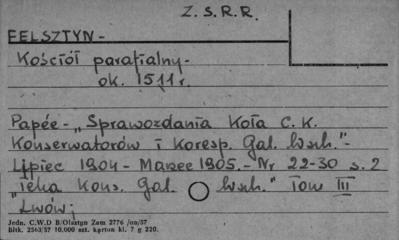 Z. S. R. R.
FELSZTYN -
Kościół parafialny -
ok. 1511 r.
Papée - „Sprawozdania Koła C. K.
Konserwatorów i Koresp. Gal. Wsch." -
Lipiec 1904 - Marzec 1905. - Nr 22-30 s. 2
„Teka Kons. Gal. Wsch." Tom III
„Lwów;
Jedn. C.W.D B/Olsztyn Zam 2776 /on/57
Bltk. 2563/57 10.000 szt. karton kl. 7 g 220.